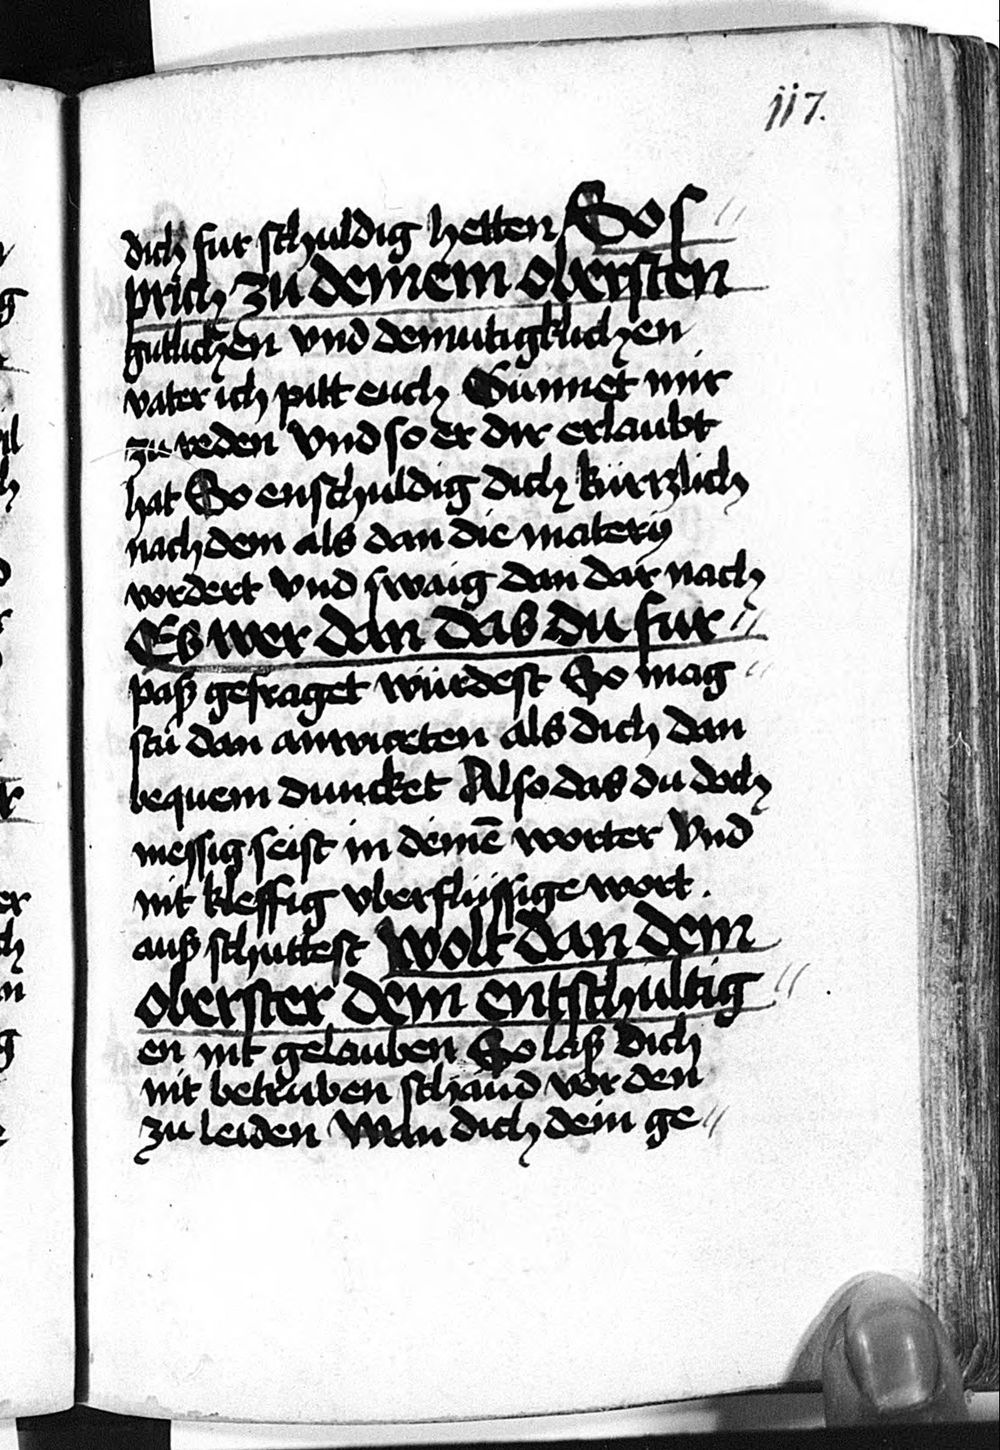 117.
dich fur schuldig hetten So s //
prich zu deinem obersten
gutlichen vnd demutigklichen
vater ich pitt euch Gunnet mir
zu reden Vnd so er dir erlaubt
hat So enschuldig dich kürtzlich
nach dem als dan die matery
vordert Vnd swaig dan dar nach
Es wer dan das du fur //
pasß gefraget würdest So mag //
stu dan antwurten als dich dan
bequem duncket Also das du doch
messig seist in deinē worter Vnd
nit kleffig vberflüssige wort .
auß schuttest Wolt dan dem
oberster dem entschultig //
en nit gelauben So laß dich
nit betruben schand vor den
zu leiden Wan dich dein ge //